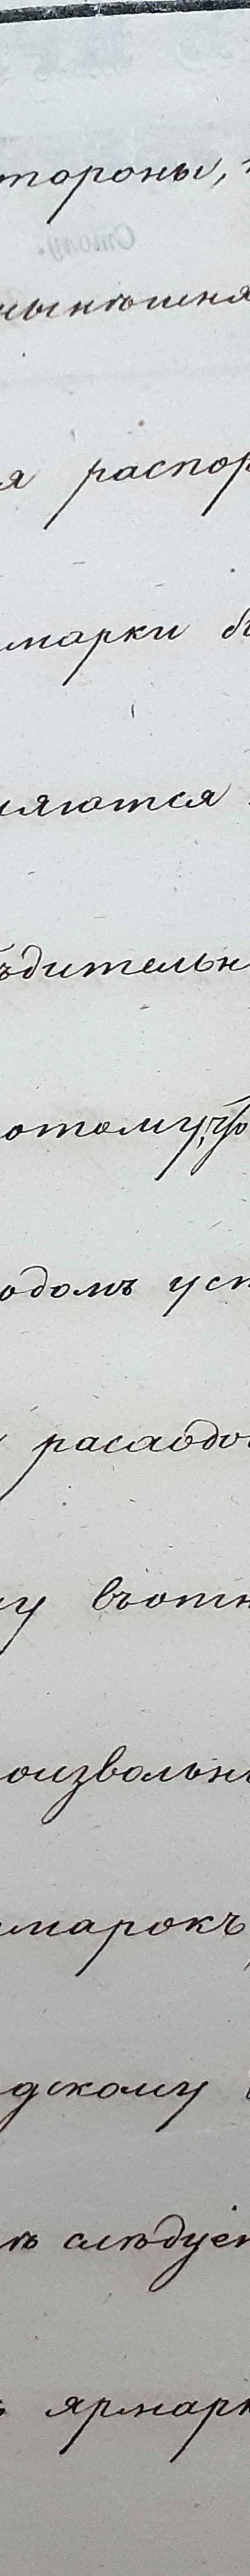 тороны,
нынѣшня
я распор
марки б
ляются
ѣдительн
отому, что
одомъ усп
расходо
у въотн
оизвольн
марокъ,
дскому
ть слѣдует
ъ ярмарк